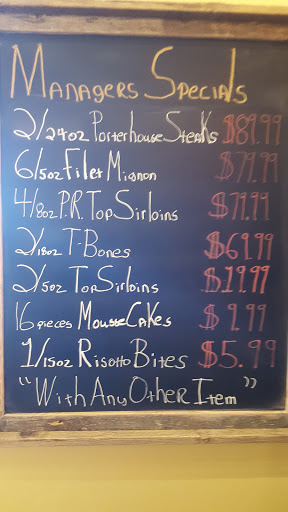 Managers Specials
2/24oz Porterhouse Steaks $89.99
6/5oz Filet Mignon $79.99
4/8oz P.R. Top Sirloins $79.99
2/18oz T-Bones $69.99
2/5oz Top Sirloins $19.99
16 pieces Mousse Cakes $9.99
1/15oz Risotto Bites $5.99
"With Any Other Item"